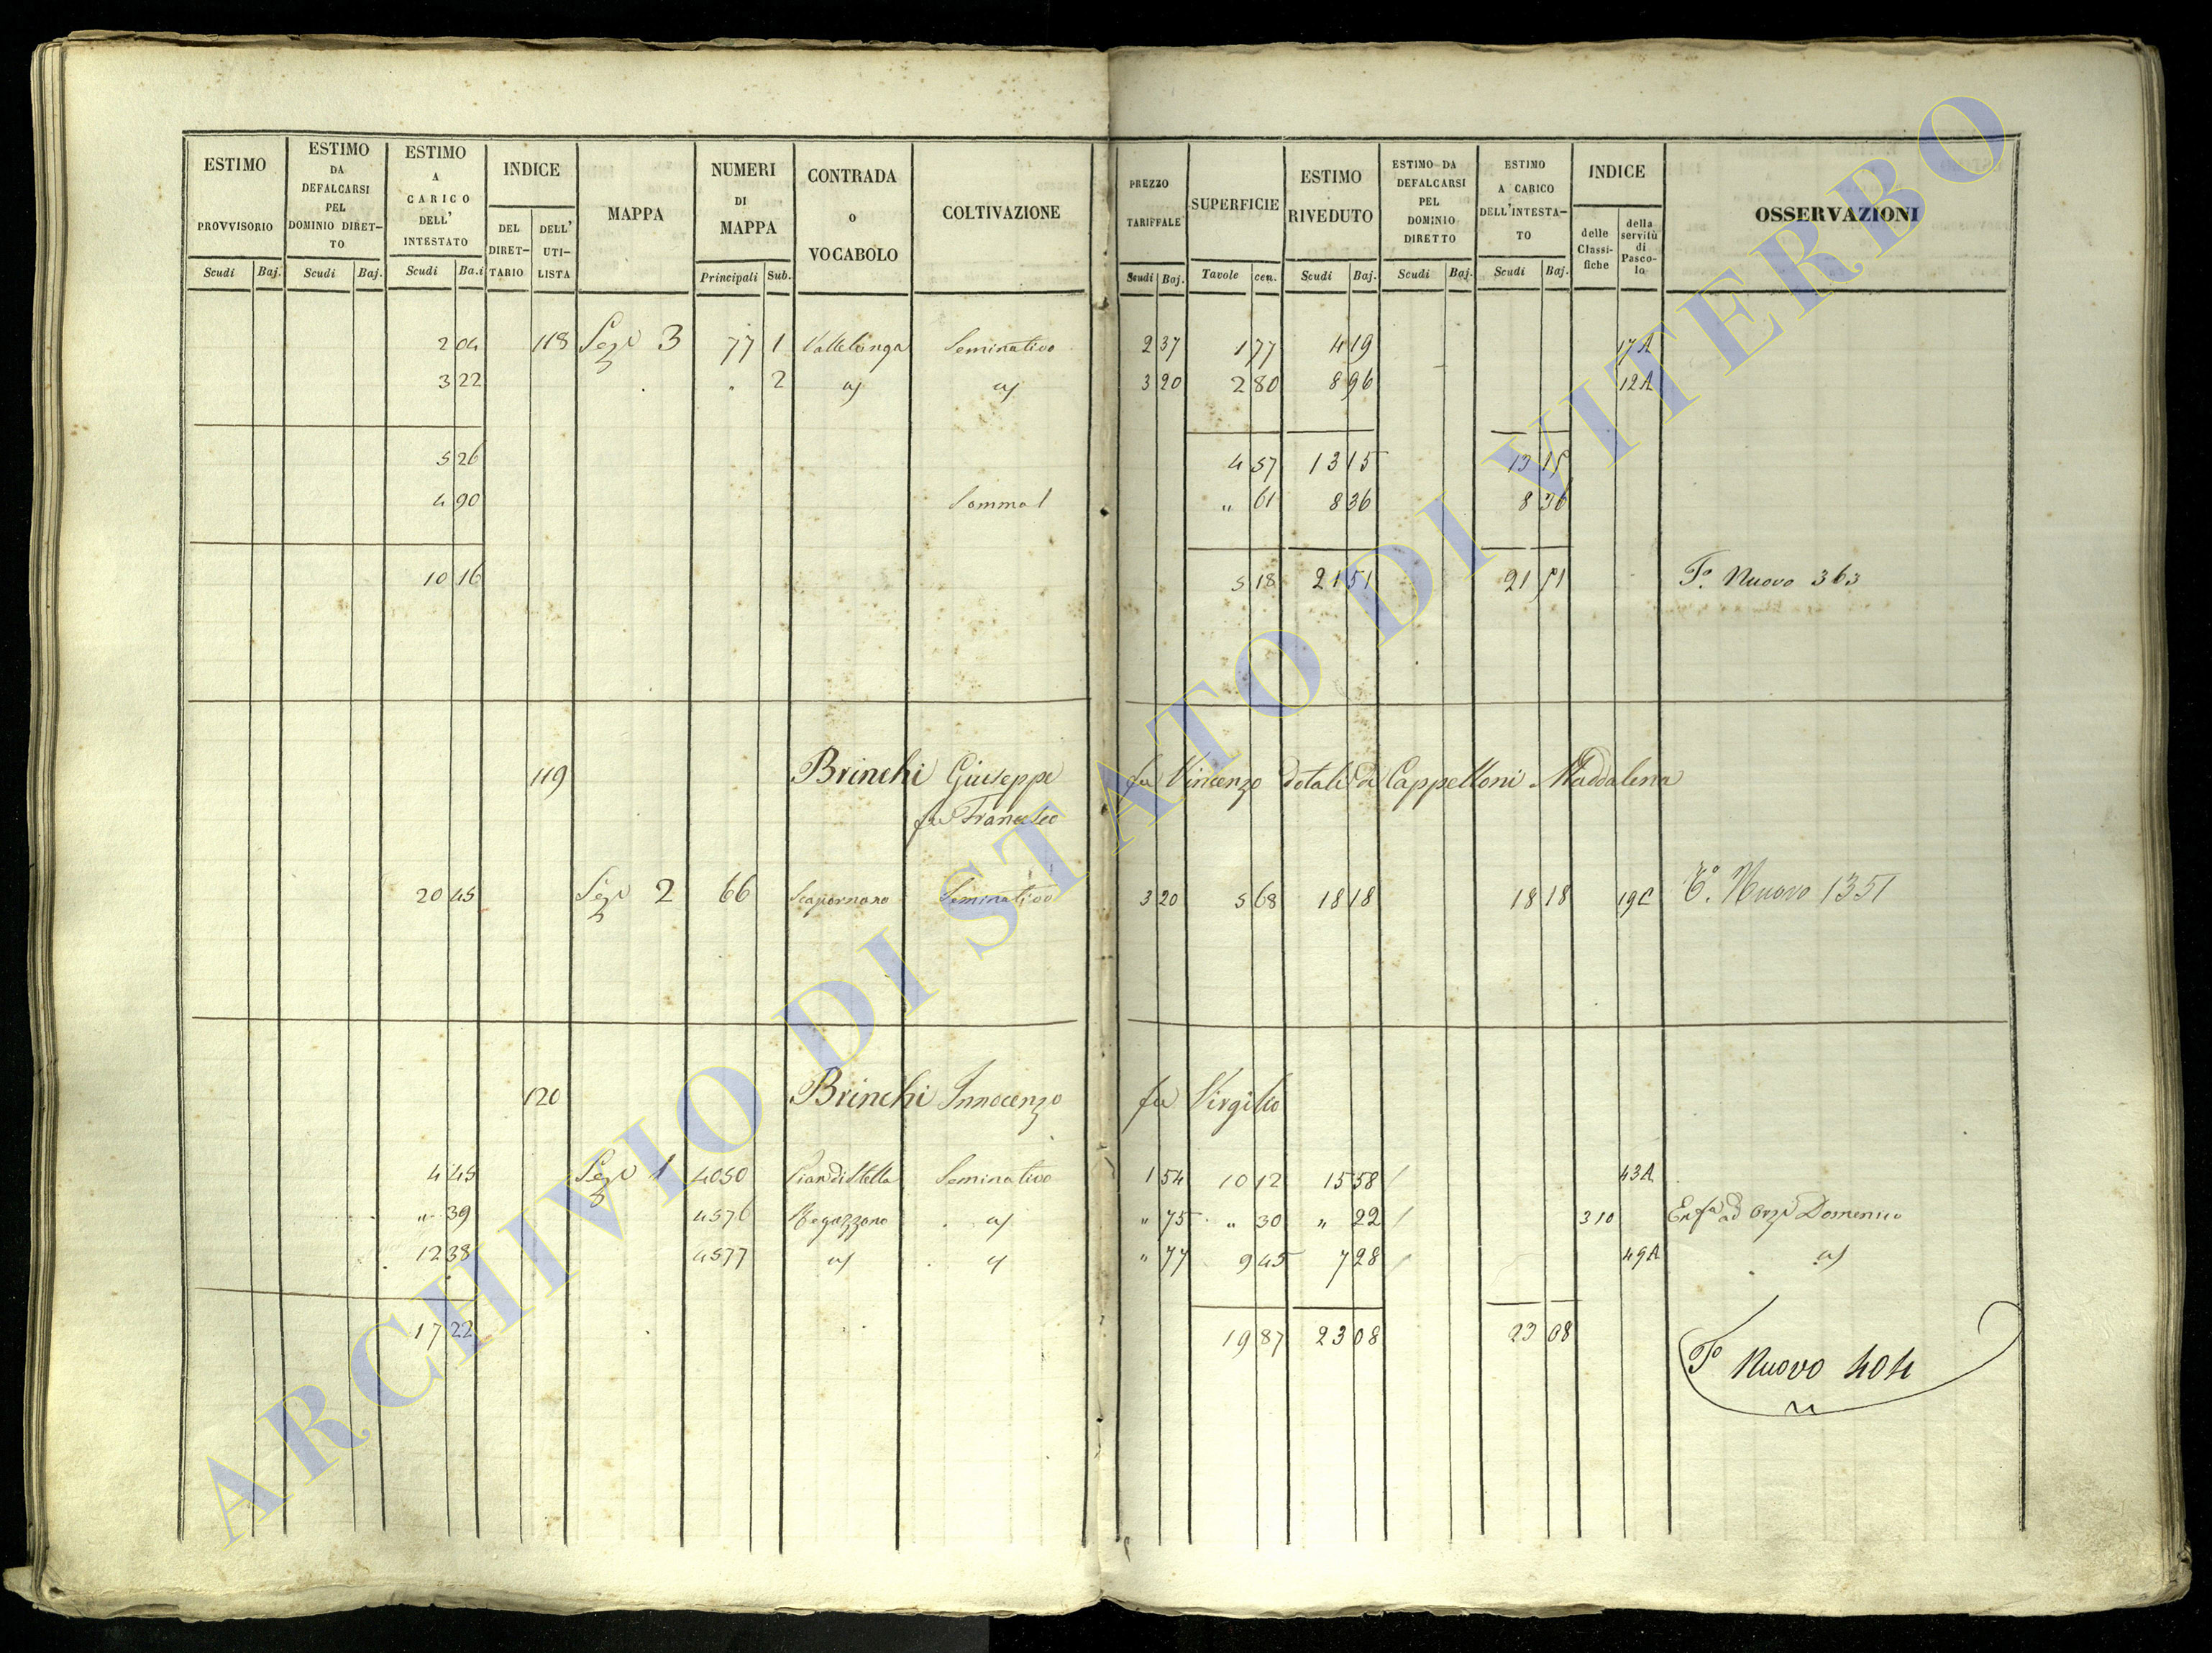 ESTIMO PROVVISORIO Scudi Baj.
ESTIMO DA DEFALCARSI PEL DOMINIO DIRET- TO Scudi Baj.
ESTIMO A CARICO DELL' INTESTATO Scudi Ba.i
INDICE DEL DIRET- TARIO DELL' UTI- LISTA
MAPPA
NUMERI DI MAPPA Principali Sub.
CONTRADA o VOCABOLO
COLTIVAZIONE
PREZZO TARIFFALE Scudi Baj.
SUPERFICIE Tavole cen.
ESTIMO RIVEDUTO Scudi Baj.
ESTIMO DA DEFALCARSI PEL DOMINIO DIRETTO Scudi Baj.
ESTIMO A CARICO DELL'INTESTA- TO Scudi Baj.
INDICE delle Classi- fiche della servitù di Pasco- lo
OSSERVAZIONI
2 04 118 Sez 3 77 1 Vallelunga Seminativo 2 37 1 77 4 19 17A
3 22 " 2 3 20 2 80 8 96 12A
5 26 4 57 13 15 13 15
4 90 Somma 1 " 61 8 36 8 36
10 16 5 18 21 51 21 51 To. Nuovo 363
119 Brinchi Giuseppe fu Vincenzo dotali di Cappelloni Maddalena
fu Francesco
20 45 Sez 2 66 Seminativo 3 20 5 68 18 18 18 18 19C To. Nuovo 1351
120 Brinchi Innocenzo fu Virgilio
4 45 Sez 1 4050 Piandistella Seminativo 1 54 10 12 15 58 43A
" 39 4576 Ragazzano " 75 " 30 " 22 310 ad Domenico
12 38 4577 " 77 9 45 7 28 49A
17 22 19 87 23 08 23 08
To Nuovo 404
ARCHIVIO DI STATO DI VITERBO